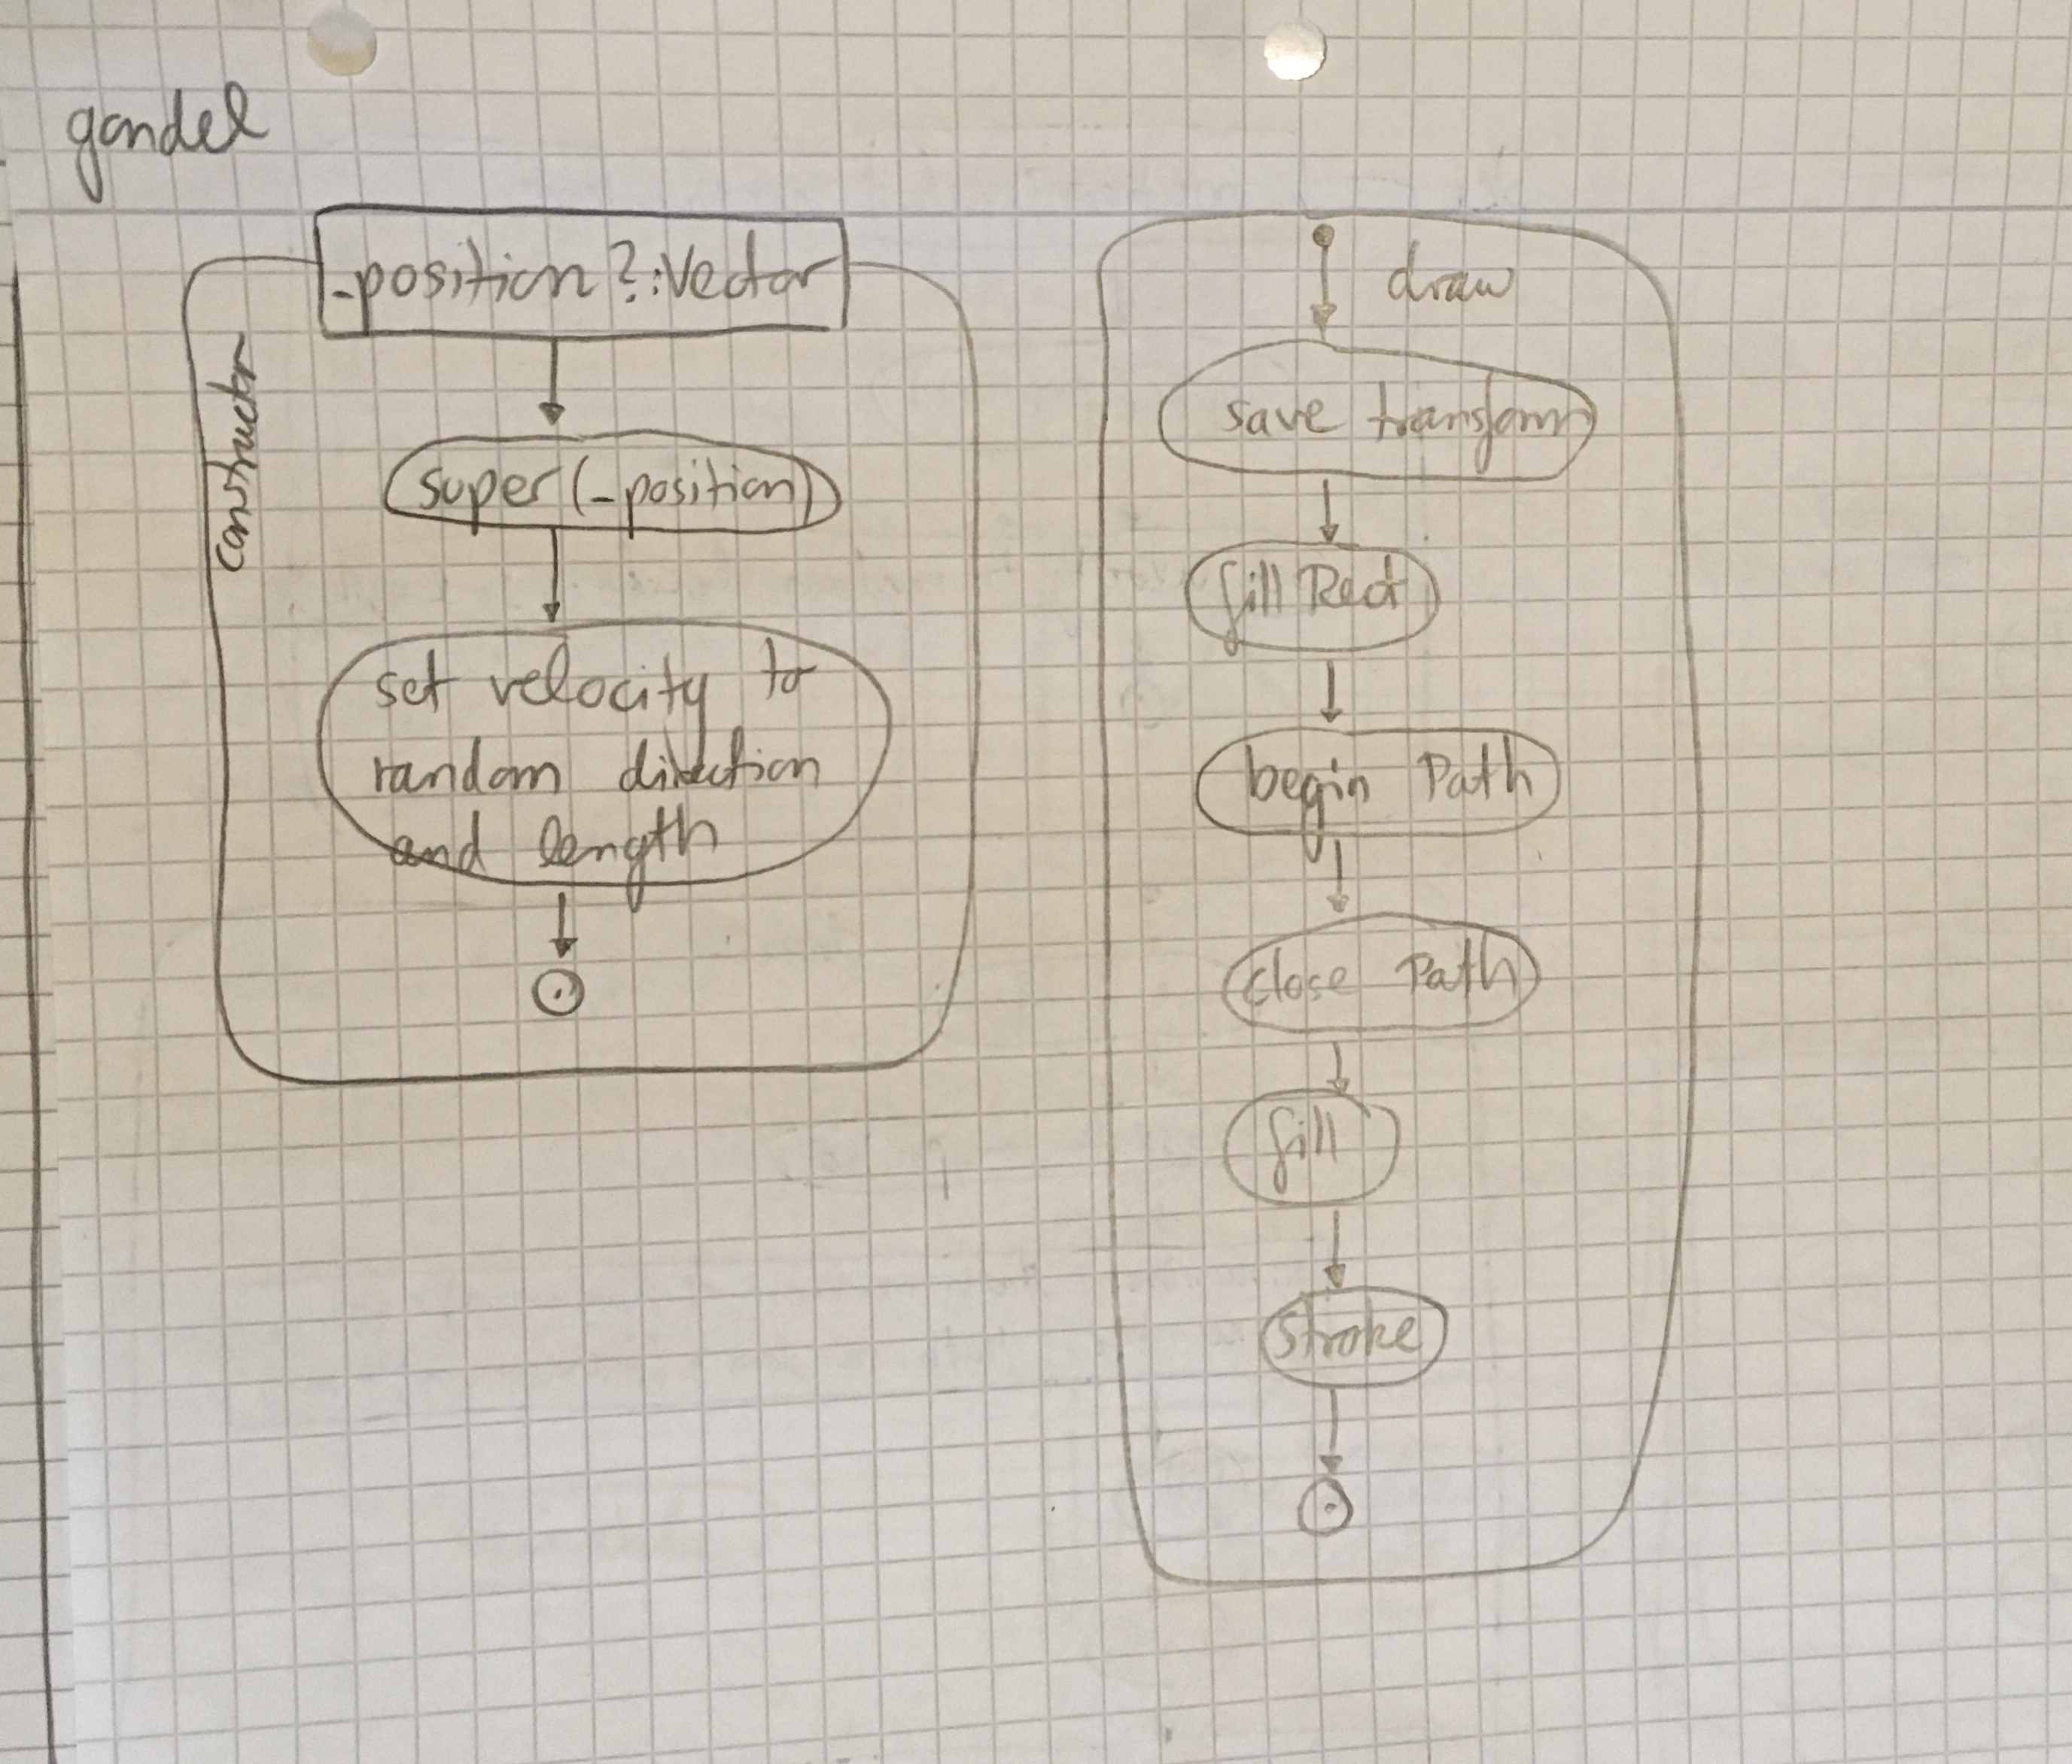 gondel
_position?:Vector
constructor
super(_position)
set velocity to
random direction
and length
draw
save transform
fill Rect
begin Path
close Path
fill
stroke